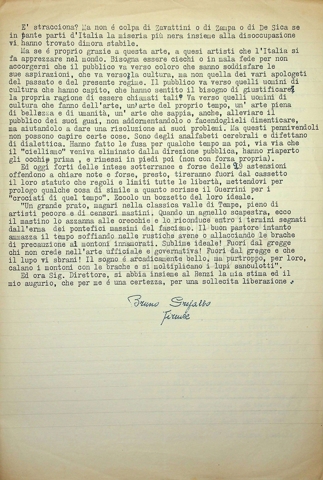 E' stracciona? Ma non é colpa di Zavattini o di Zampa o De Sica se in
tante parti d'Italia la miseria più nera insieme alla disoccupazione
vi hanno trovato dimora stabile.
Ma se é proprio grazie a questa arte, a quesi artisti che l'Italia si
fa apprezzare nel mondo. Bisogna essere ciechi o in mala fede per non
accorgersi che il pubblico va verso coloro che sanno soddisfare le
sue aspirazioni, che va verso la cultura, ma non quella dei vari apologeti
del passato e del presente regime. Il pubblico va verso quelli uomini di
cultura che hanno capito, che hanno sentito il bisogno di giustificare
la propria ragione di essere chiamati tali! Va verso quelli uomini di
cultura che fanno dell'arte, un'arte del proprio tempo, un' arte piena
di bellezza e di umanità, un' arte che sappia, anche, alleviare il
pubblico dei suoi guai, non addormentandolo o facendoglieli dimenticare,
ma aiutandolo a dare una risoluzione ai suoi problemi. Ma questi pennivendoli
non possono capire certe cose. Sono degli analfabeti cerebrali e difettano
di dialettica. Hanno fatto le fusa per qualche tempo ma poi, via via che
il "ciellismo" veniva eliminato dalla direzione pubblica, hanno riaperto
gli occhi prima , e rimessi in piedi poi (non con forza propria).
Ed oggi forti delle intese sotterranee e forse delle 19 astensioni
offendono a chiare note e forse, presto, tireranno fuori dal cassetto
il loro statuto che regoli e limiti tutte le libertà, mettendovi per
prologo qualche cosa di simile a quanto scrisse il Guerrini per i
"crociati di quel tempo". Eccolo un bozzetto del loro ideale.
"Un grande prato, magari nella classica valle di Tempe, pieno di
artisti pecore e di censori mastini. Quando un agnello scapestra, ecco
il mastino lo azzanna alle orecchie e lo riconduce entro i termini segnati
dall'erma dei pontefici massimi del fascismo. Il buon pastore intanto
ammazza il tempo soffiando nelle rustiche avene o allacciando le brache
di precauzione ai montoni innamorati. Sublime ideale! Fuori dal gregge
chi non crede nell'arte ufficiale e governativa! Fuori dal gregge e che
il lupo vi sbrani! Il sogno é arcadicamente bello, ma purtroppo, per loro,
calano i montoni con le brache e si moltiplicano i lupi sanculotti".
Ed ora Sig. Direttore, si abbia insieme al Renzi la mia stima ed il
mio augurio, che per me é una certezza, per una sollecita liberazione .
Bruno
Firenze